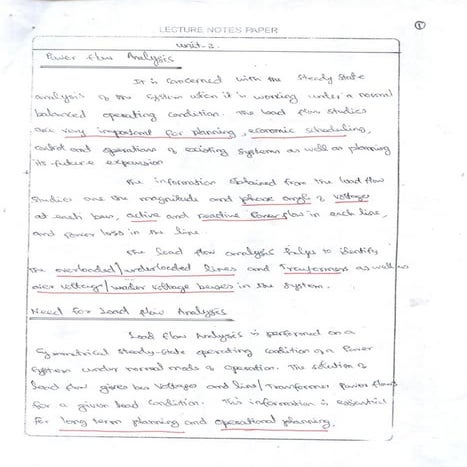 ①
LECTURE NOTES PAPER
unit-2.
Power flow Analysis
It is concerned with the steady state
analysis of the system when it is working under a normal
balanced operating condition. The load flow studies
are very important for planning, economic scheduling,
control and operations of existing systems as well as planning
its future expansion
The information obtained from the load flow
studies are the magnitude and phase angle of voltages
at each bus, active and reactive power flow in each line,
and power loss in the line.
The load flow analysis helps to identify
the overloaded/underloaded lines and Transformers as well as
over voltage/under voltage buses in the system.
Need for Load flow Analysis
Load flow Analysis is performed on a
Symmetrical steady-state operating condition of a Power
System under normal mode of operation. The solution of
load flow gives bus voltages and line/Transformer power flows
for a given load condition. This information is essential
for long term planning and operational planning.